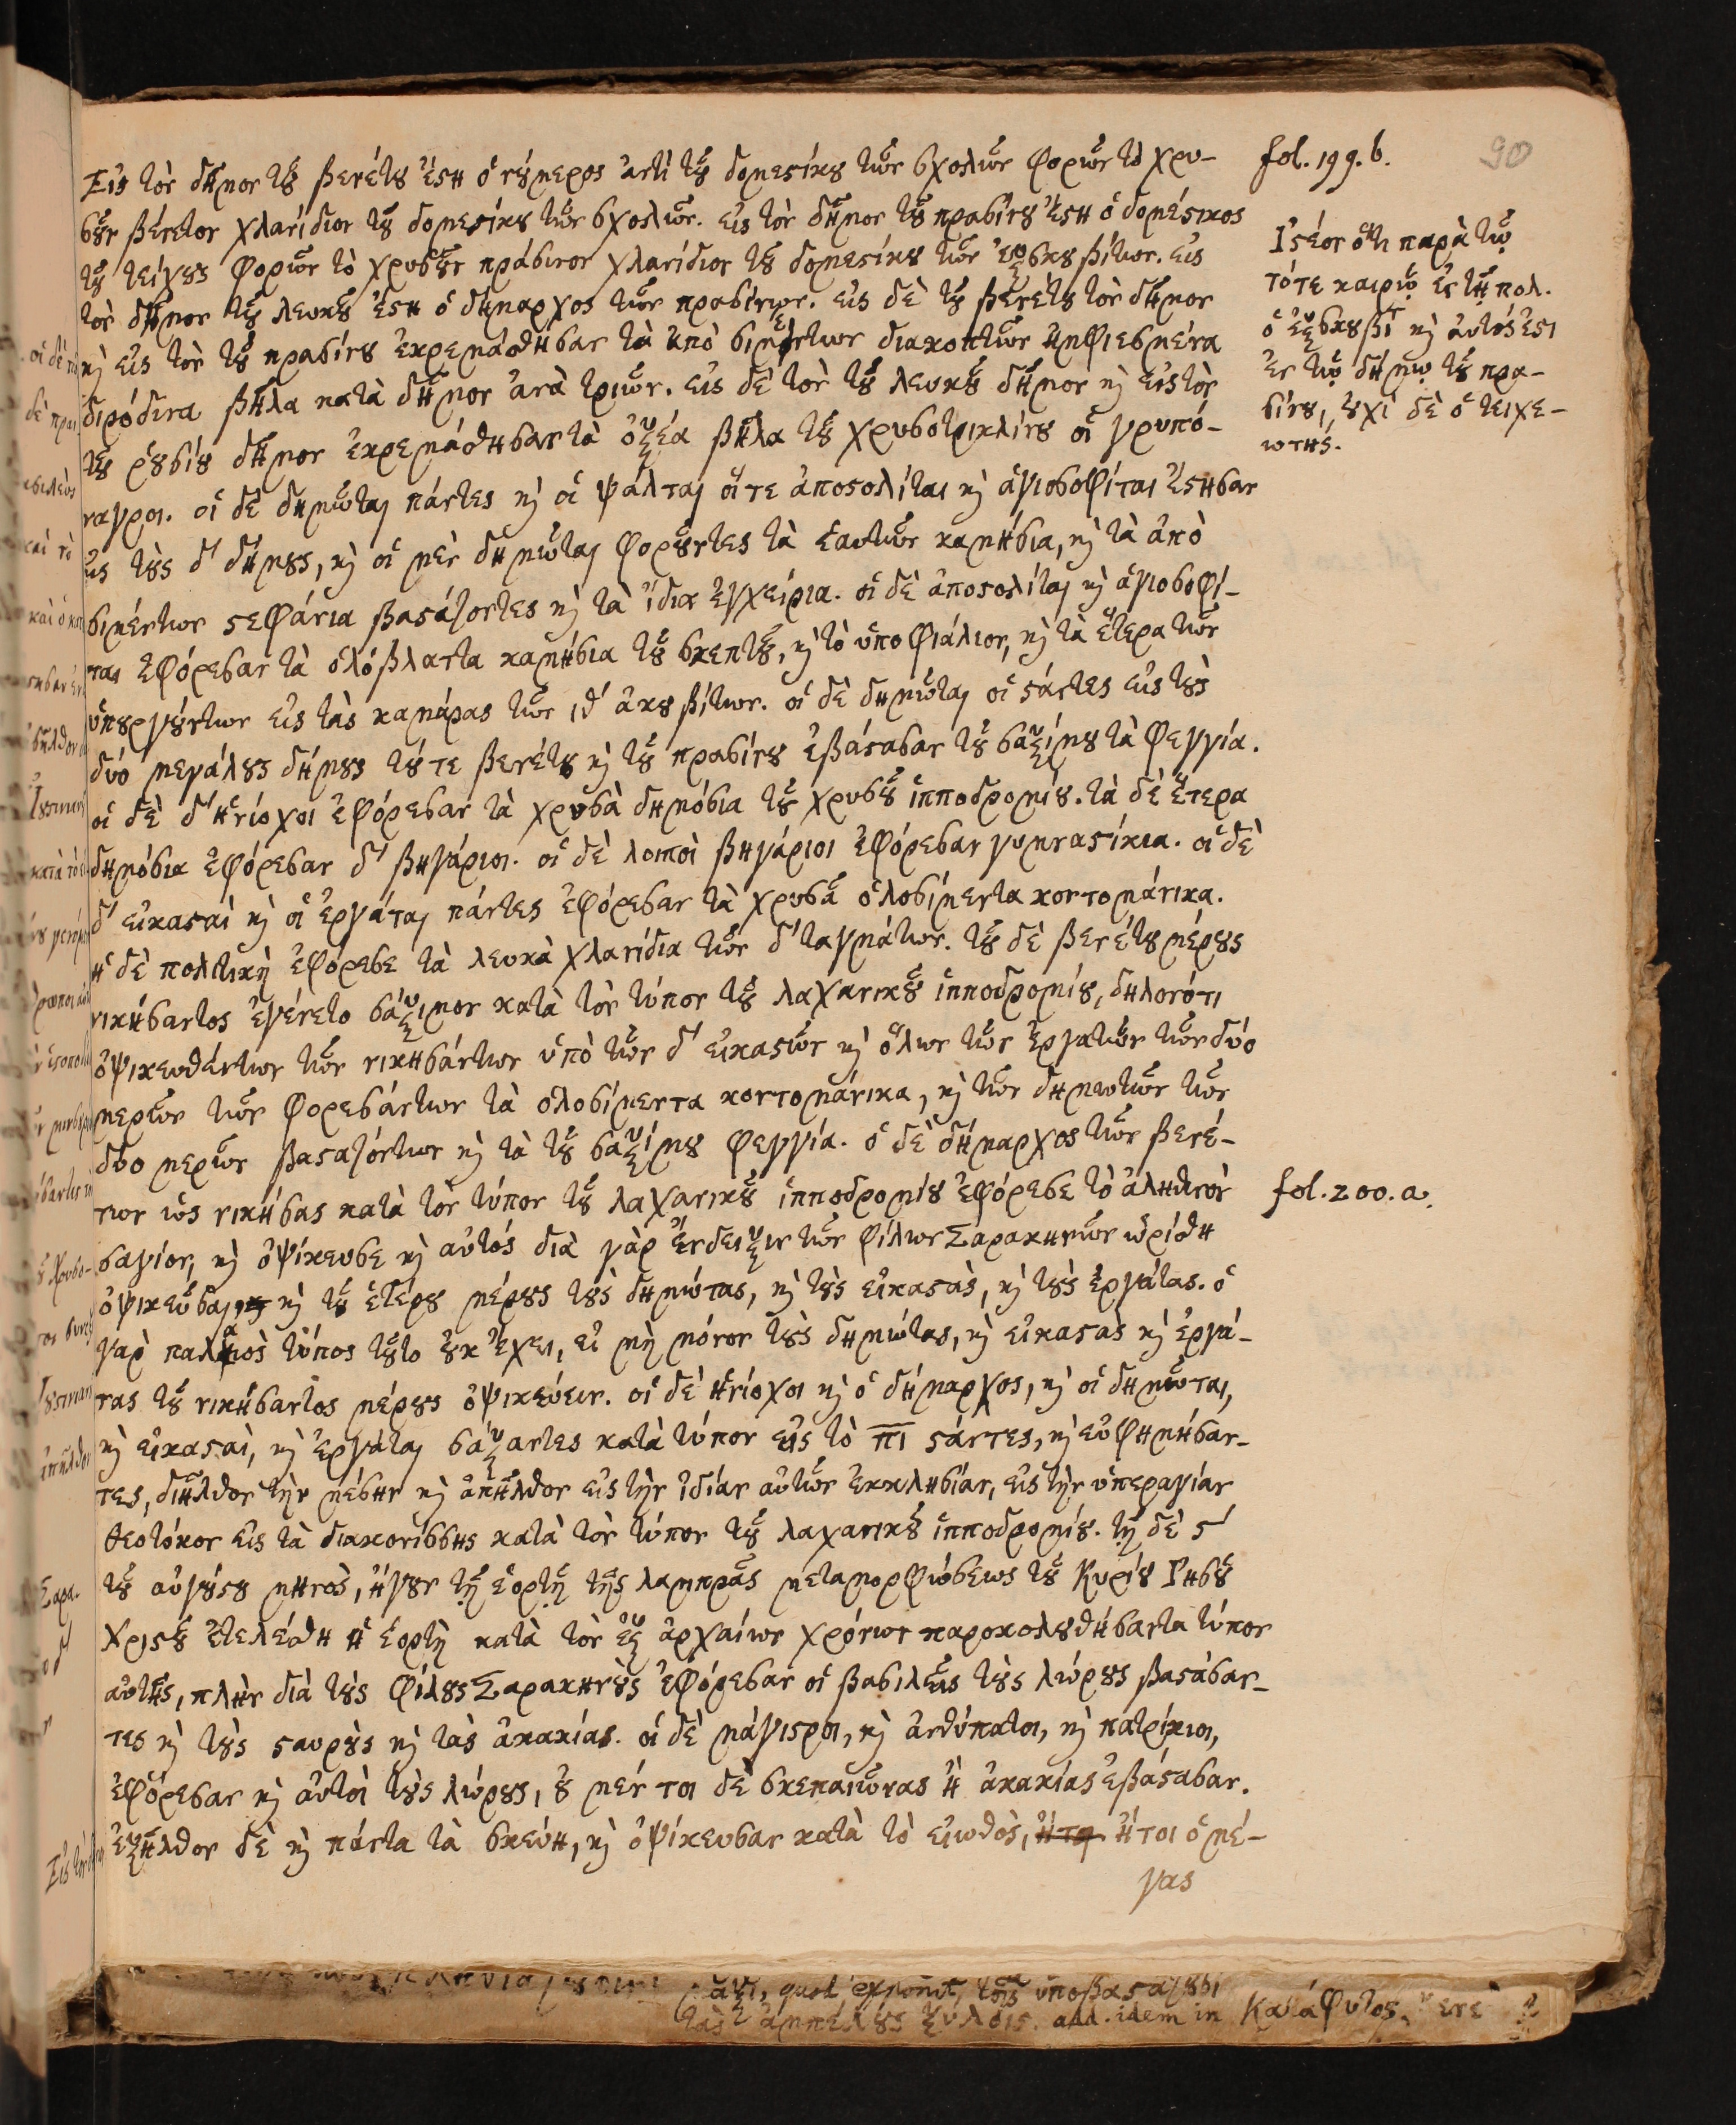 fol. 199. b.
90
Εἰς τὸν δῆμον τοῦ βενέτου ἔστη ὁ νούμερος ἀντὶ τοῦ δομεστίκου τῶν σχολῶν φορῶν τὸ χρυ-
σοῦν βένετον χλανίδιον τοῦ δομεστίκου τῶν σχολῶν. εἰς τὸν δῆμον τοῦ πρασίνου ἔστη ὁ δομέστικος
τοῦ τείχους φορῶν τὸ χρυσοῦν πράσινον χλανίδιον τοῦ δομεστίκου τῶν ἐξσκουβίτων. εἰς
τὸν δῆμον τοῦ λευκοῦ ἔστη ὁ δήμαρχος τῶν πρασίνων. εἰς δὲ τοῦ βενέτου τὸν δῆμον
καὶ εἰς τὸν τοῦ πρασίνου ἐκρεμάσθησαν τὰ ἀπὸ σιμέντων διακοπτῶν ἠμφιεσμένα
διρόδινα βῆλα κατὰ δῆμον ἀνὰ τριῶν. εἰς δὲ τὸν τοῦ λευκοῦ δῆμον καὶ εἰς τὸν
τοῦ ῥουσίου δῆμον ἐκρεμάσθησαν τὰ ὀξέα βῆλα τοῦ χρυσοτρικλίνου οἱ γρυπό-
ναγροι. οἱ δὲ δημῶται πάντες καὶ οἱ ψάλται οἵ τε ἀποστολῖται καὶ ἁγιοσοφῖται ἔστησαν
εἰς τοὺς δ' δήμους, καὶ οἱ μὲν δημῶται φοροῦντες τὰ ἑαυτῶν καμήσια, καὶ τὰ ἀπὸ
σιμέντων στεφάνια βαστάζοντες καὶ τὰ ἴδια ἐγχείρια. οἱ δὲ ἀποστολῖται καὶ ἁγιοσοφῖ-
ται ἐφόρεσαν τὰ ὁλόβλαττα καμήσια τοῦ σκεπτοῦ, καὶ τὸ ὑποφιάλιον, καὶ τὰ ἕτερα τῶν
ὑπουργούντων εἰς τὰς καμάρας τῶν ιθ' ἀκουβίτων. οἱ δὲ δημῶται οἱ στάντες εἰς τοὺς
δύο μεγάλους δήμους τοῦ τε βενέτου καὶ τοῦ πρασίνου ἐβάστασαν τοῦ σαξίμου τὰ φεγγία.
οἱ δὲ δ' ἡνίοχοι ἐφόρεσαν τὰ χρυσᾶ δημόσια τοῦ χρυσοῦ ἱπποδρομίου. τὰ δὲ ἕτερα
δημόσια ἐφόρεσαν δ' βηγάριοι. οἱ δὲ λοιποὶ βηγάριοι ἐφόρεσαν γυμναστίκια. οἱ δὲ
δ' εἰκασταὶ καὶ οἱ ἐργάται πάντες ἐφόρεσαν τὰ χρυσᾶ ὁλοσίμεντα κοντομάνικα.
ἡ δὲ πολιτικὴ ἐφόρεσε τὰ λευκὰ χλανίδια τῶν δ' ταγμάτων. τοῦ δὲ βενέτου μέρους
νικήσαντος ἐγένετο σάξιμον κατὰ τὸν τύπον τοῦ λαχανικοῦ ἱπποδρομίου, δηλονότι
ὀψικευθέντων τῶν νικησάντων ὑπὸ τῶν δ' εἰκαστῶν καὶ ὅλων τῶν ἐργατῶν τῶν δύο
μερῶν τῶν φορεσάντων τὰ ὁλοσίμεντα κοντομάνικα, καὶ τῶν δημωτῶν τῶν
δύο μερῶν βασταζόντων καὶ τὰ τοῦ σαξίμου φεγγία. ὁ δὲ δήμαρχος τῶν βενέ-
των ὡς νικήσας κατὰ τὸν τύπον τοῦ λαχανικοῦ ἱπποδρομίου ἐφόρεσε τὸ ἀληθινὸν
σαγίον, καὶ ὀψίκευσε καὶ αὐτός διὰ γὰρ ἔνδειξιν τῶν φίλων Σαρακηνῶν ὡρίσθη
ὀψικεῦσαι καὶ τοῦ ἑτέρου μέρους τοὺς δημώτας, καὶ τοὺς εἰκαστὰς, καὶ τοὺς ἐργάτας. ὁ
γὰρ παλαιὸς τύπος τοῦτο οὐκ ἔχει, εἰ μὴ μόνον τοὺς δημώτας, καὶ εἰκαστὰς καὶ ἐργά-
τας τοῦ νικήσαντος μέρους ὀψικεύειν. οἱ δὲ ἡνίοχοι καὶ ὁ δήμαρχος, καὶ οἱ δημῶται,
καὶ εἰκασταὶ, καὶ ἐργάται σάξαντες κατὰ τύπον εἰς τὸ πι στάντες, καὶ εὐφημήσαν-
τες, διῆλθον τὴν μέσην καὶ ἀπῆλθον εἰς τὴν ἰδίαν αὐτῶν ἐκκλησίαν, εἰς τὴν ὑπεραγίαν
θεοτόκον εἰς τὰ διακονίσσης κατὰ τὸν τύπον τοῦ λαχανικοῦ ἱπποδρομίου. τῇ δὲ ϛ'
τοῦ αὐγούστου μηνὸς, ἤγουν τῇ ἑορτῇ τῆς λαμπρᾶς μεταμορφώσεως τοῦ Κυρίου Ἰησοῦ
Χριστοῦ ἐτελέσθη ἡ ἑορτὴ κατὰ τὸν ἐξ ἀρχαίων χρόνων παρακολουθήσαντα τύπον
αὐτῆς, πλὴν διὰ τοὺς φίλους Σαρακηνοὺς ἐφόρεσαν οἱ βασιλεῖς τοὺς λώρους βαστάσαν-
τες καὶ τοὺς σταυροὺς καὶ τὰς ἀκακίας. οἱ δὲ μάγιστροι, καὶ ἀνθύπατοι, καὶ πατρίκιοι,
ἐφόρεσαν καὶ αὐτοὶ τοὺς λώρους, οὐ μέν τοι δὲ σκεπαιῶνας ἢ ἀκακίας ἐβάστασαν.
ἐξῆλθον δὲ καὶ πάντα τὰ σκεύη, καὶ ὀψίκευσαν κατὰ τὸ εἰωθὸς, ἤτοι ὁ μέ-
γας
Ἰστέον ὅτι παρὰ τῷ
τότε καιρῷ ἐν τῇ πολ.
ὁ ἐξσκουβιτ καὶ αὐτός ἐστι
ἐν τῷ δήμῳ τοῦ πρα-
σίνου, οὐχὶ δὲ ὁ τειχε-
ωτής.
fol. 200. a.
quod exponit, τοῖς ὑποβασταζουσι
τὰς ἀμπέλους ξύλοις. add. idem in Κατάφυτος.